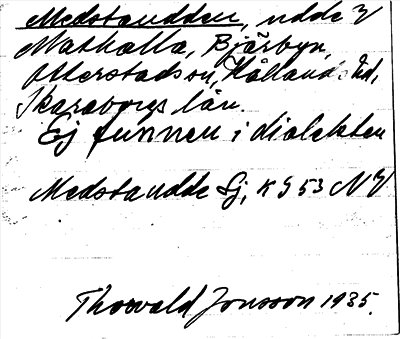 Medstaudden, udde V
Mathalla, Bjärbyn,
Otterstads sn, Kållands hd,
Skaraborgs län.
Ej funnen i dialekten
Medstaudde Sj, K G 53 NV
Thorvald Jonsson 1935.